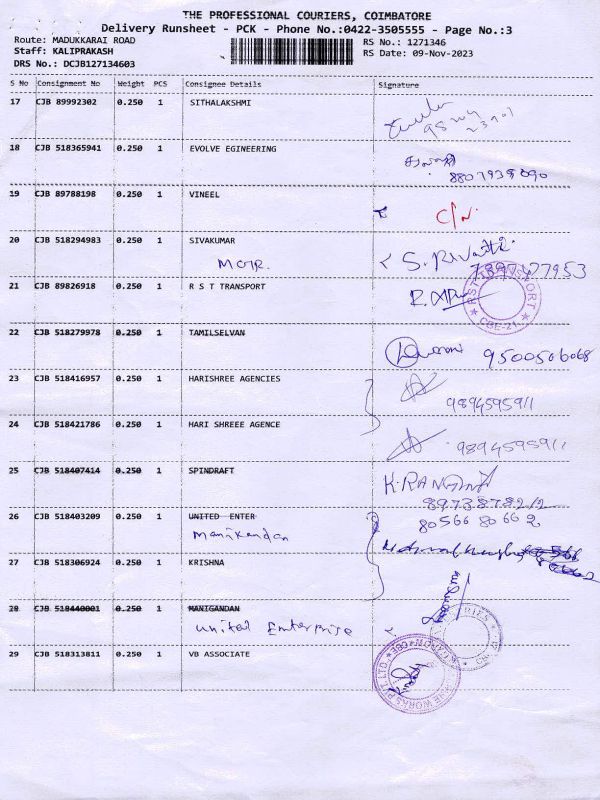 THE PROFESSIONAL COURIERS, COIMBATORE
Delivery Runsheet - PCK - Phone No.:0422-3505555 - Page No.:3
Route: MADUKKARAI ROAD
RS No.: 1271346
Staff: KALIPRAKASH
RS Date: 09-Nov-2023
DRS No.: DCJB127134603
S No Consignment No Weight PCS Consignee Details Signature
17 CJB 89992302 0.250 1 SITHALAKSHMI
18 CJB 518365941 0.250 1 EVOLVE EGINEERING
19 CJB 89788198 0.250 1 VINEEL C/N.
20 CJB 518294983 0.250 1 SIVAKUMAR
S. Revathi.
21 CJB 89826918 0.250 1 R S T TRANSPORT
RST TRANSPORT CBE-21
22 CJB 518279978 0.250 1 TAMILSELVAN
9500506068
23 CJB 518416957 0.250 1 HARISHREE AGENCIES
9894595911
24 CJB 518421786 0.250 1 HARI SHREEE AGENCE
9894595911
25 CJB 518407414 0.250 1 SPINDRAFT
26 CJB 518403209 0.250 1 UNITED ENTER
80566 80662
Manikandan
27 CJB 518306924 0.250 1 KRISHNA
28 CJB 518440001 0.250 1 MANIGANDAN
United Enterprise
29 CJB 518313811 0.250 1 VB ASSOCIATE